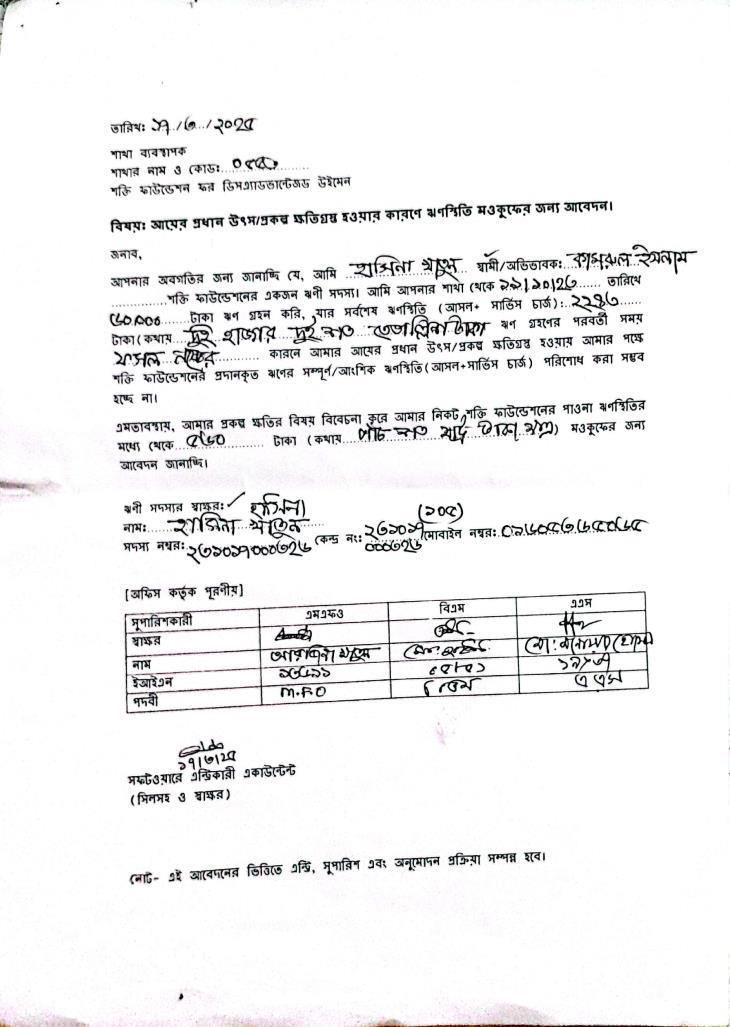 তারিখঃ ১৭/৩/২০২৫
শাখা ব্যবস্থাপক
শাখার নাম ও কোড:
শক্তি ফাউন্ডেশন ফর ডিসএ্যাডভান্টেজড উইমেন
বিষয়: আয়ের প্রধান উৎস/প্রকল্প ক্ষতিগ্রস্ত হওয়ার কারণে ঋণস্থিতি মওকুফের জন্য আবেদন।
জনাব,
আপনার অবগতির জন্য জানাচ্ছি যে, আমি হাসিনা খাতুন স্বামী/অভিভাবক: কামরুল ইসলাম
শক্তি ফাউন্ডেশনের একজন ঋণী সদস্য। আমি আপনার শাখা থেকে তারিখে
টাকা ঋণ গ্রহন করি, যার সর্বশেষ ঋণস্থিতি (আসল+ সার্ভিস চার্জ):
টাকা (কথায় দুই হাজার দুই শত তেতাল্লিশ টাকা ঋণ গ্রহণের পরবর্তী সময়
ফসল নষ্টের কারনে আমার আয়ের প্রধান উৎস/প্রকল্প ক্ষতিগ্রস্ত হওয়ায় আমার পক্ষে
শক্তি ফাউন্ডেশনের প্রদানকৃত ঋণের সম্পূর্ণ/আংশিক ঋণস্থিতি (আসল+সার্ভিস চার্জ) পরিশোধ করা সম্ভব
হচ্ছে না।
এমতাবস্থায়, আমার প্রকল্প ক্ষতির বিষয় বিবেচনা করে আমার নিকট শক্তি ফাউন্ডেশনের পাওনা ঋণস্থিতির
মধ্যে থেকে ৫৬০ টাকা (কথায় পাঁচ শত ষাট টাকা মাত্র) মওকুফের জন্য
আবেদন জানাচ্ছি।
ঋণী সদস্যর স্বাক্ষর: হাসিনা
নাম: হাসিনা খাতুন কেন্দ্র নং: (১০৫)
সদস্য নম্বর: মোবাইল নম্বর:
[অফিস কর্তৃক পূরণীয়]
সুপারিশকারী এমএফও বিএম এএম
স্বাক্ষর
নাম
ইআইএন
পদবী M.F.O বিএম এএম
১৭/৩/২৫
সফটওয়ারে এন্ট্রিকারী একাউন্টেন্ট
(সিলসহ ও স্বাক্ষর)
নোট- এই আবেদনের ভিত্তিতে এন্ট্রি, সুপারিশ এবং অনুমোদন প্রক্রিয়া সম্পন্ন হবে।